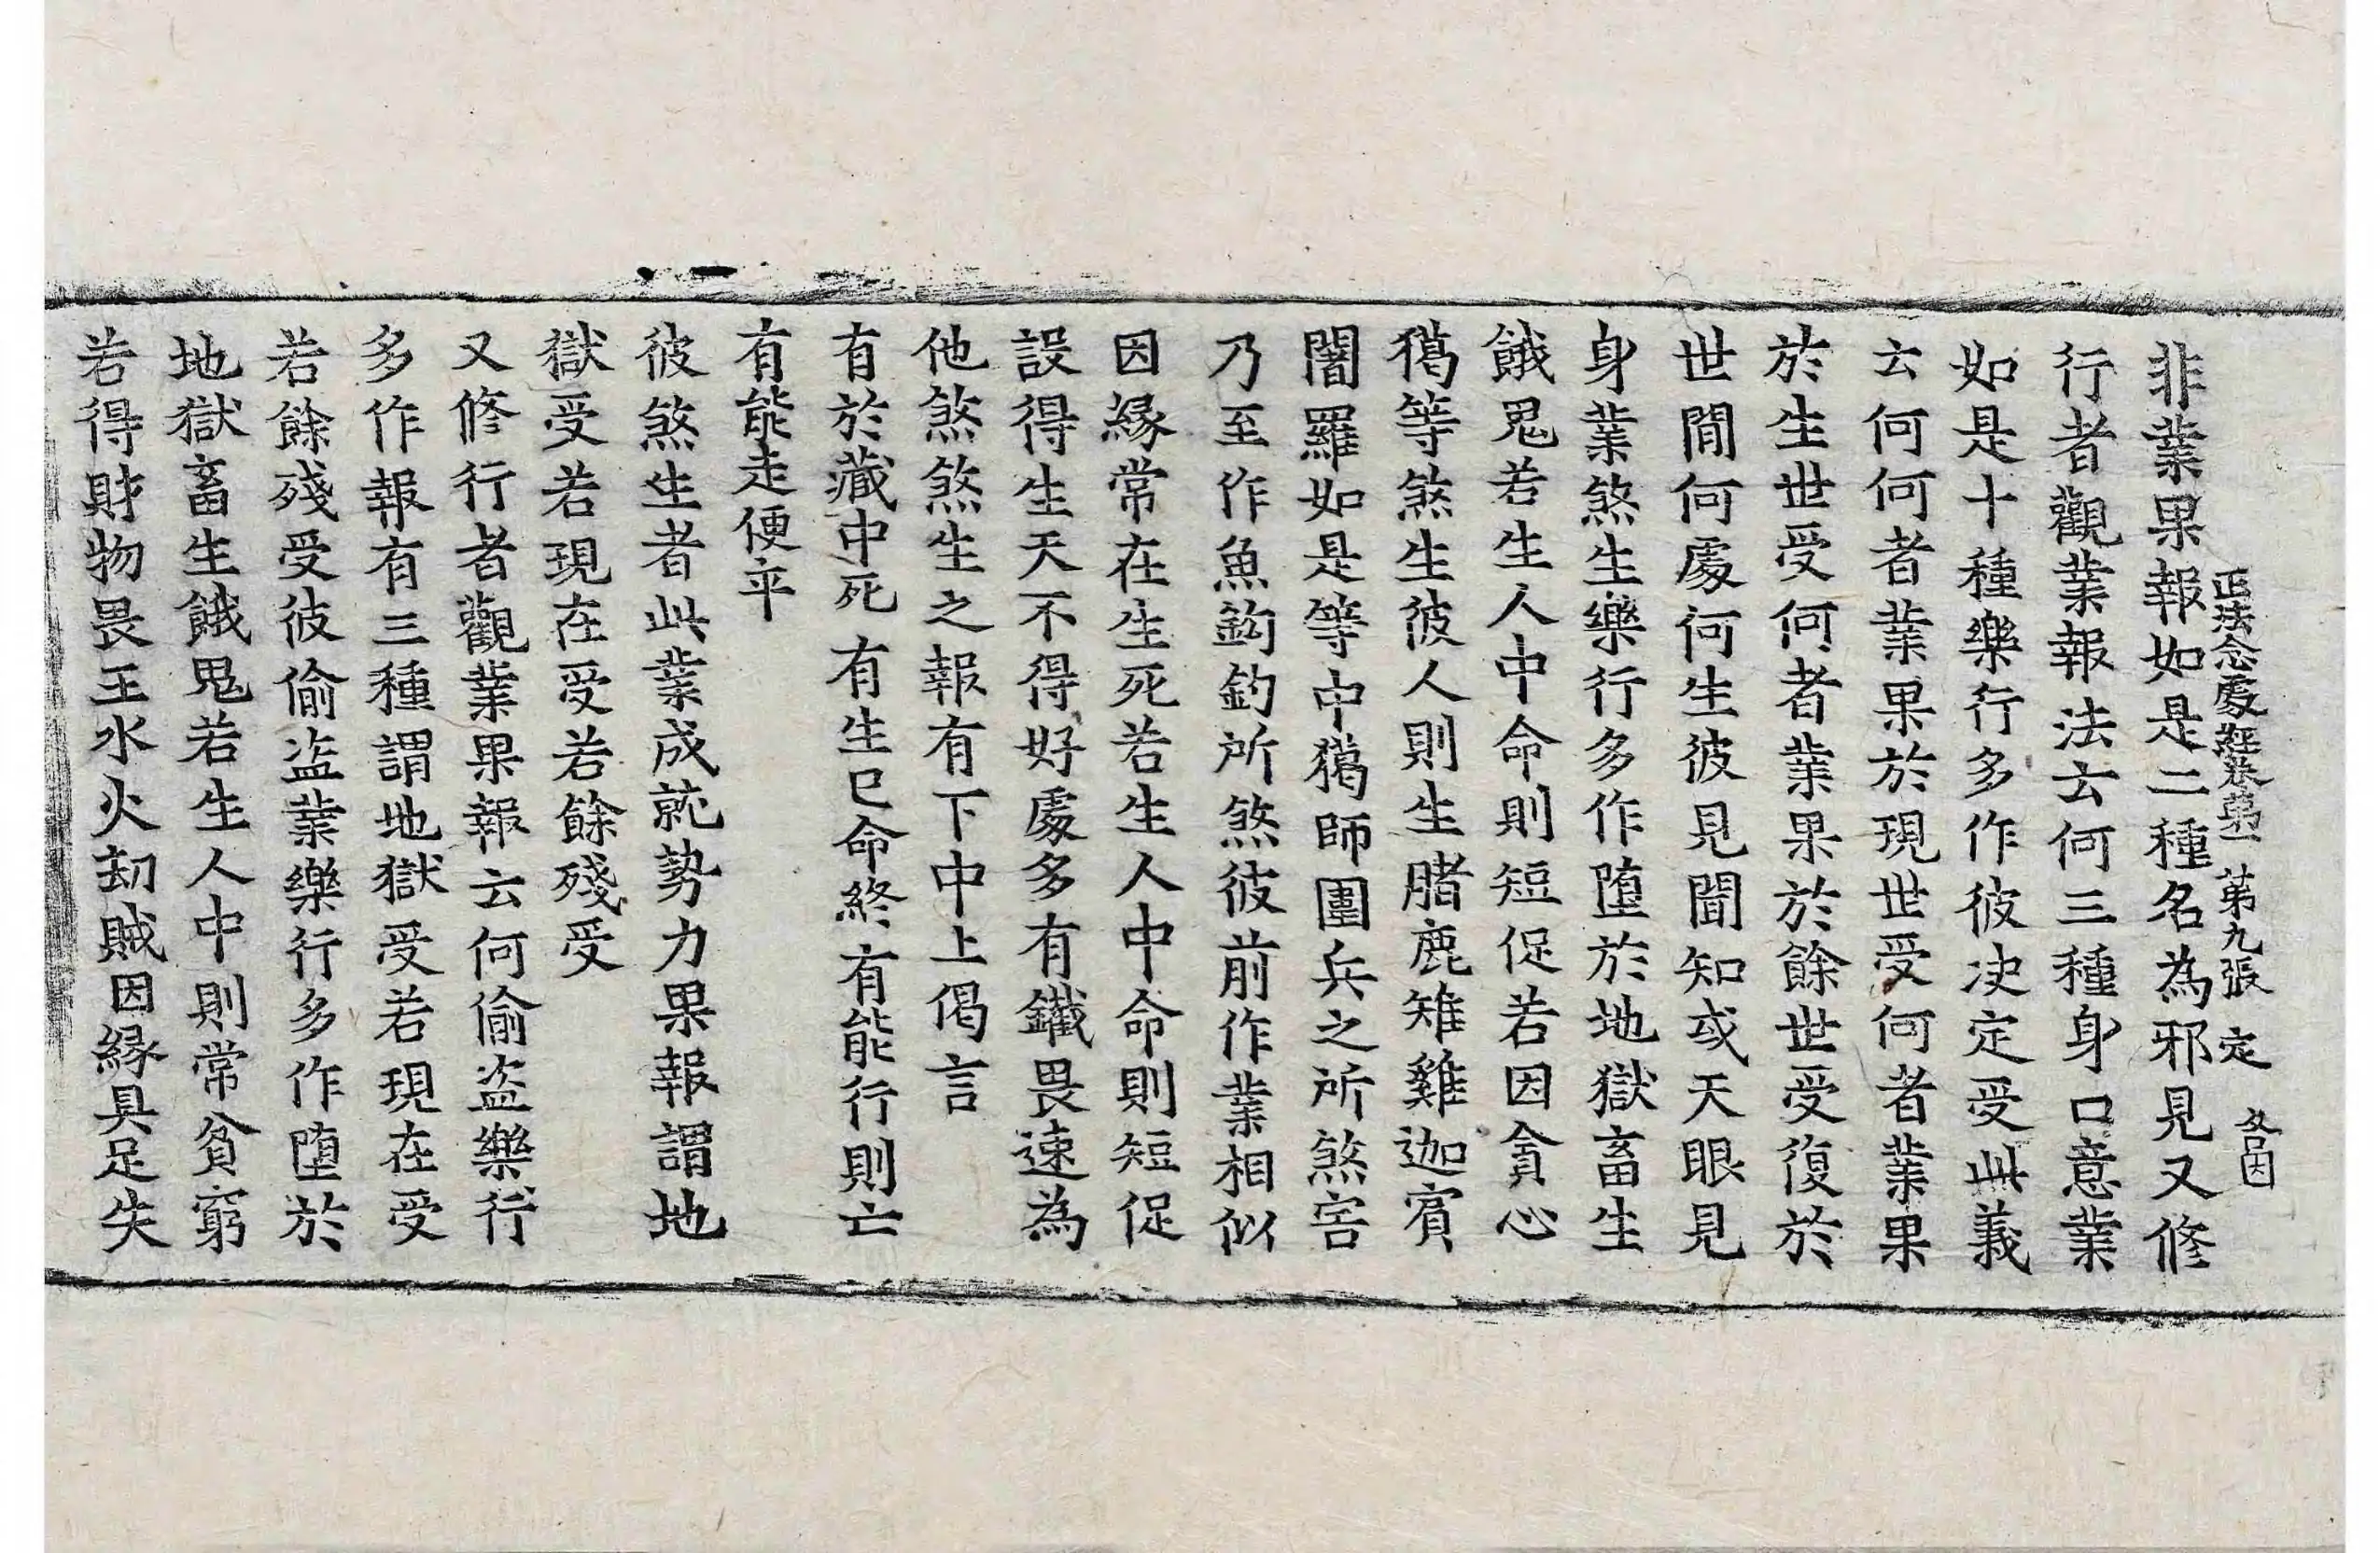 正法念處經卷第一　第九張　定
非業果報如是二種名為邪見又修
行者觀業報法云何三種身口意業
如是十種樂行多作彼决定受此義
云何何者業果於現世受何者業果
於生世受何者業果於餘世受復於
世間何處何生彼見聞知或天眼見
身業煞生樂行多作堕於地獄畜生
餓鬼若生人中命則短促若因貪心
獦等煞生彼人則生賭鹿雉雞迦賓
闍羅如是等中獦師圍兵之所煞害
乃至作魚鉤釣所煞彼前作業相似
因緣常在生死若生人中命則短促
設得生天不得好處多有鐵畏速為
他煞煞生之報有下中上偈言
有於藏中死　有生已命終　有能行則亡
有能走便卒
彼煞生者此業成就勢力果報謂地
獄受若現在受若餘殘受
又修行者觀業果報云何偷盗樂行
多作報有三種謂地獄受若現在受
若餘殘受彼偷盗業樂行多作堕於
地獄畜生餓鬼若生人中則常貧窮
若得財物畏王水火刧賊因緣具足失